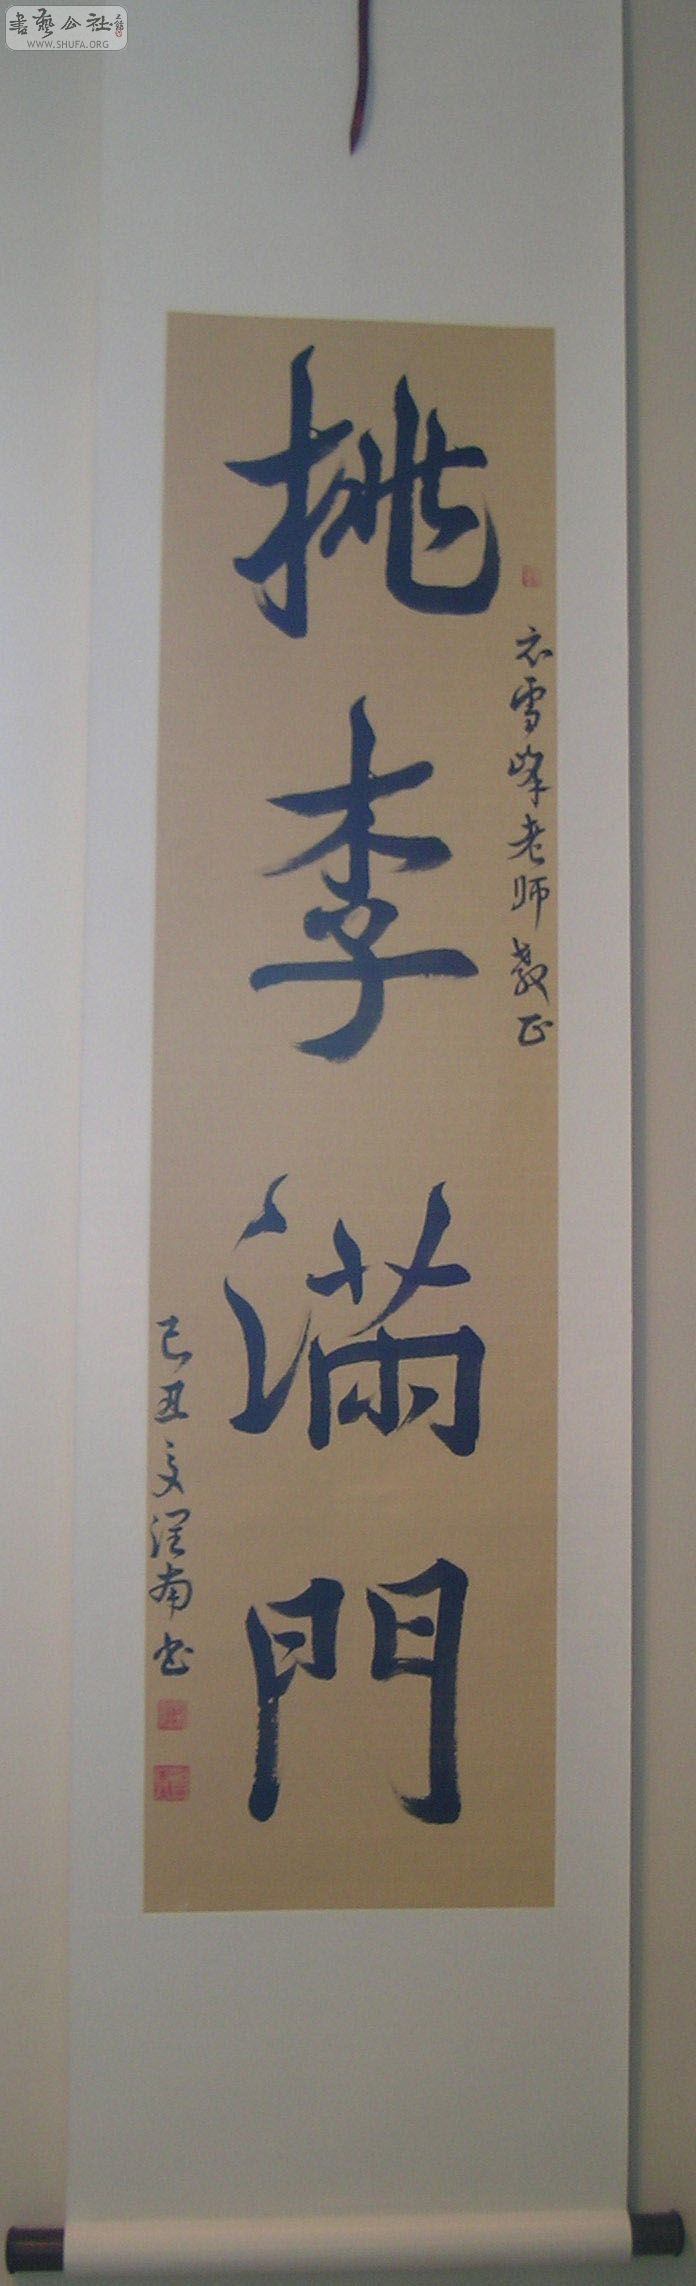 書藝公社
WWW.SHUFA.ORG
桃李滿門
衣雪峰老师教正
己丑文淫南书